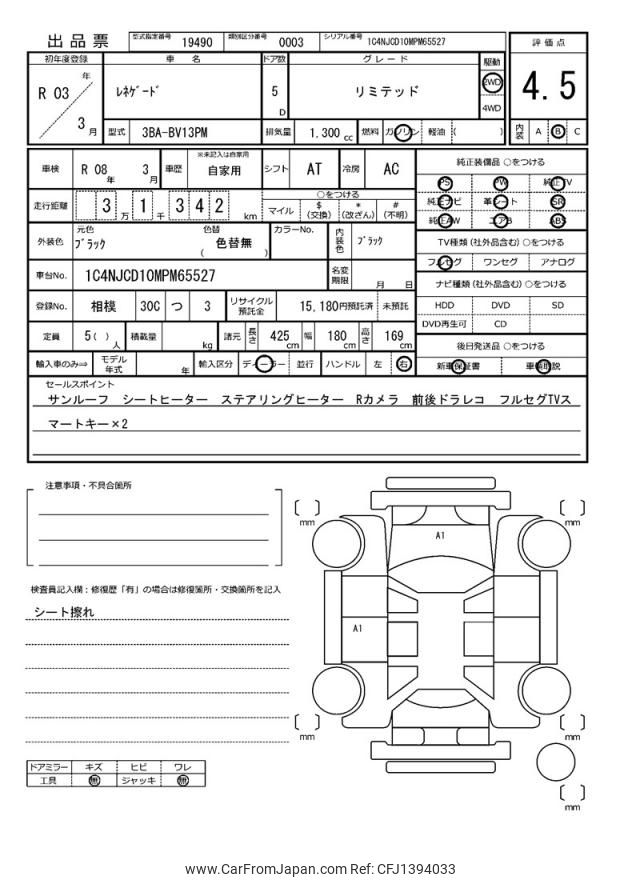 出品票 型式指定番号 19490 類別区分番号 0003 シリアル番号 1C4NJCD10MPM65527
初年度登録 車名 ドア数 グレード 駆動 評価点
R 03 年 3 月 ﾚﾈｹﾞｰﾄﾞ 5 D リミテッド 2WD 4WD 4.5
型式 3BA-BV13PM 排気量 1,300 cc 燃料 ガソリン 軽油 ( ) 内装 A B C
車検 R 08 年 3 月 車歴 ※未記入は自家用 自家用 シフト AT 冷房 AC
純正装備品 ○をつける
PS PW 純正TV
純正ナビ 革シート SR
純正AW エアB ABS
走行距離 3 万 1 千 3 4 2 km ○をつける マイル $ (交換) * (改ざん) # (不明)
TV種類 (社外品含む) ○をつける
フルセグ ワンセグ アナログ
外装色 元色 ﾌﾞﾗｯｸ 色替 ( 色替無 ) カラーNo. 内装色 ﾌﾞﾗｯｸ
車台No. 1C4NJCD10MPM65527 名変期限 月 日
ナビ種類 (社外品含む) ○をつける
HDD DVD SD
DVD再生可 CD
登録No. 相模 300 つ 3 リサイクル預託金 15,180円預託済 未預託
定員 5 ( ) 人 積載量 kg 諸元 長さ 425 cm 幅 180 cm 高さ 169 cm
後日発送品 ○をつける
新車保証書 車輌取説
輸入車のみ⇒ モデル年式 年 輸入区分 ディーラー 並行 ハンドル 左 右
セールスポイント
サンルーフ シートヒーター ステアリングヒーター Rカメラ 前後ドラレコ フルセグTVス
マートキー×2
注意事項・不具合箇所
検査員記入欄：修復歴「有」の場合は修復箇所・交換箇所を記入
シート擦れ
ドアミラー キズ ヒビ ワレ
工具 無 ジャッキ 無
[ ] mm
[ ] mm
A1
A1
[ ] mm
[ ] mm
[ ] mm
www.CarFromJapan.com Ref: CFJ1394033